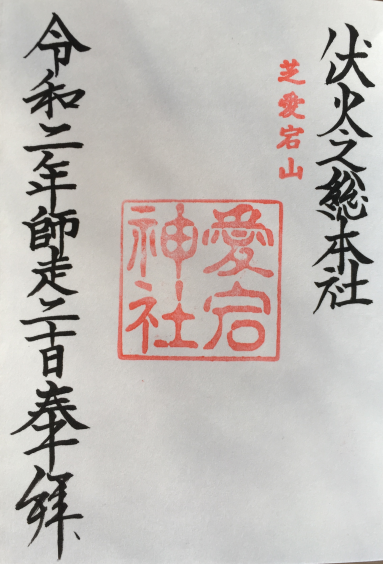 伏火之総本社
芝愛宕山
愛宕
神社
令和二年師走二十日奉拝